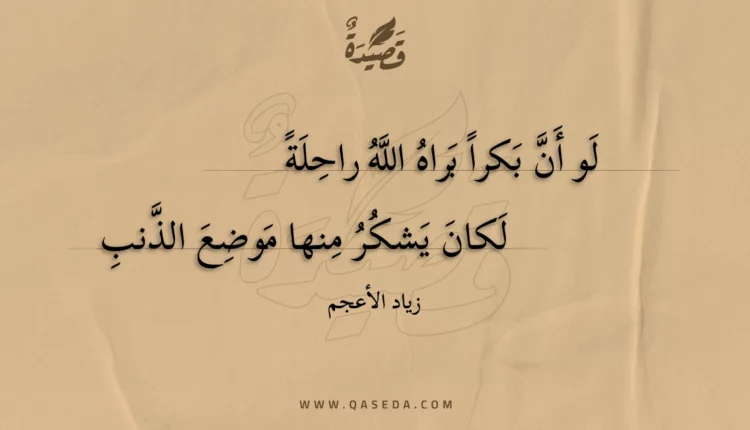 قَصِيدَةٌ
لَو أَنَّ بَكراً بَراهُ اللَّهُ راحِلَةً
لَكانَ يَشكُرُ مِنها مَوضِعَ الذَّنبِ
زياد الأعجم
WWW.QASEDA.COM